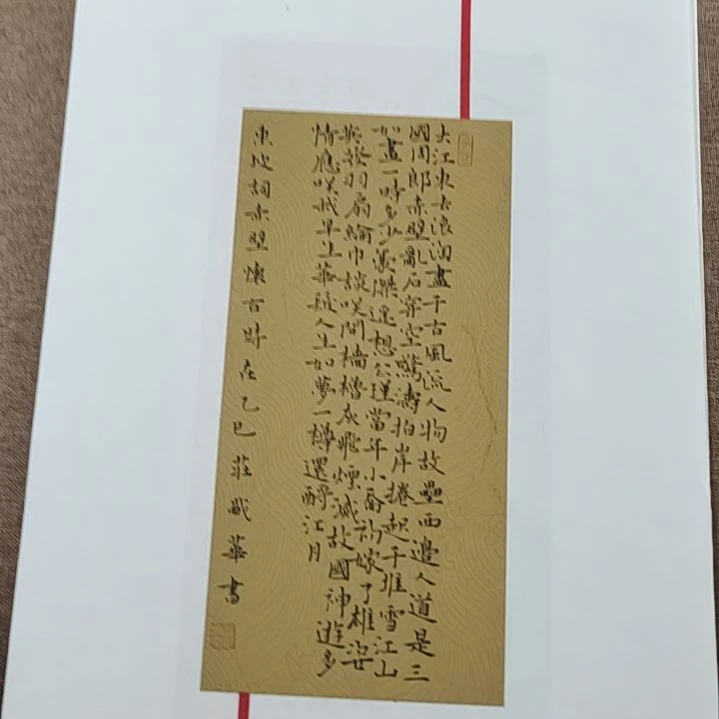 大江東去浪淘盡千古風流人物故壘西邊人道是三
國周郎赤壁亂石穿空驚濤拍岸捲起千堆雪江山
如畫一時多少豪傑遙想公瑾當年小喬初嫁了雄姿
英發羽扇綸巾談咲間檣櫓灰飛煙滅故國神遊多
情應咲我早生華髮人生如夢一樽還酹江月
東坡詞赤壁懷古時在乙巳莊華書